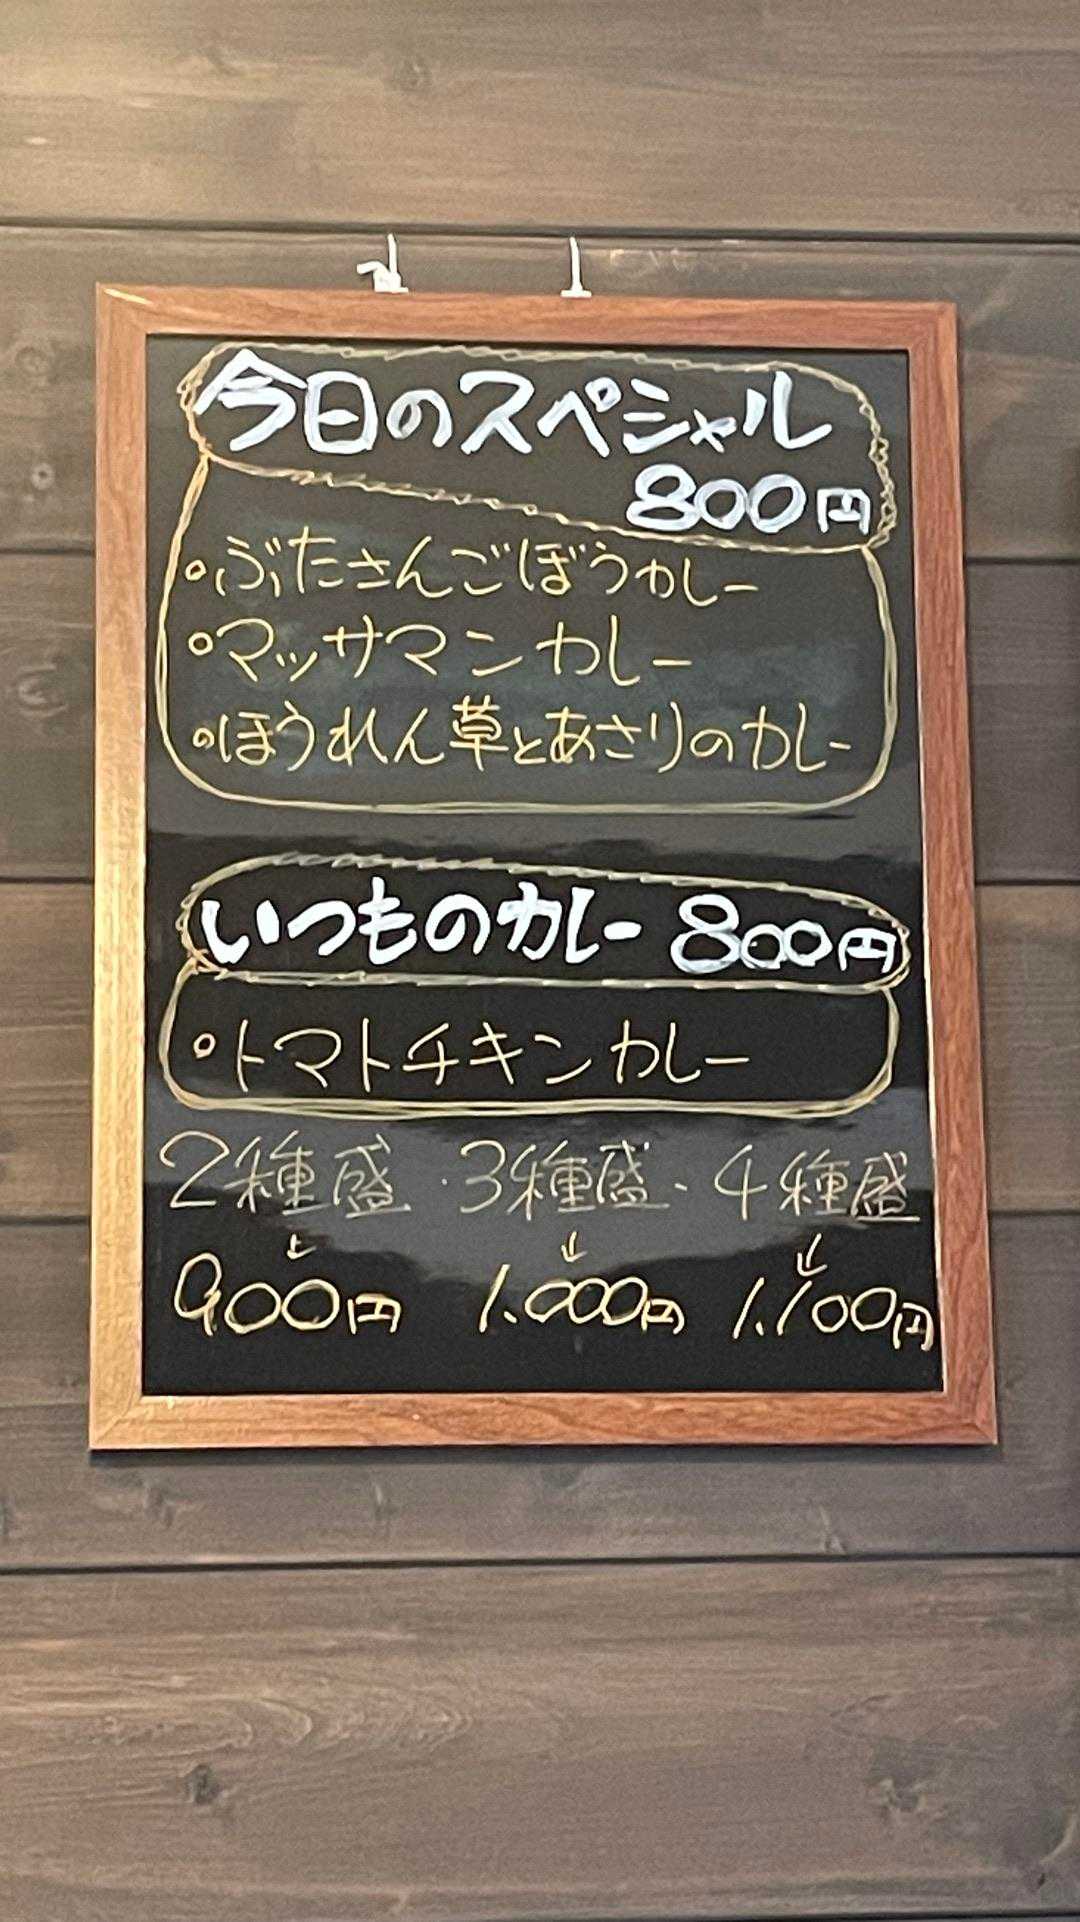 今日のスペシャル
800円
・ぶたさんごぼうカレー
・マッサマンカレー
・ほうれん草とあさりのカレー
いつものカレー 800円
・トマトチキンカレー
2種盛・3種盛・4種盛
↓ ↓ ↓
900円 1.000円 1.100円